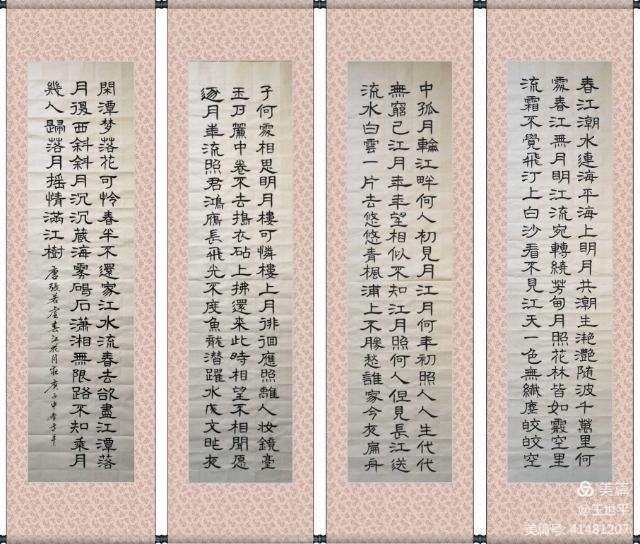 春江潮水連海平海上明月共潮生滟灧隨波千萬里何
處春江無月明江流宛轉繞芳甸月照花林皆如霰空里
流霜不覺飛汀上白沙看不見江天一色無纖塵皎皎空
中孤月輪江畔何人初見月江月何年初照人人生代代
無窮已江月年年望相似不知江月照何人但見長江送
流水白雲一片去悠悠青楓浦上不勝愁誰家今夜扁舟
子何處相思明月樓可憐樓上月徘徊應照離人妝鏡臺
玉戶簾中卷不去搗衣砧上拂還來此時相望不相聞願
逐月華流照君鴻雁長飛光不度魚龍潛躍水成文昨夜
閑潭梦落花可怜春半不還家江水流春去欲盡江潭落
月復西斜斜月沉沉藏海霧碣石瀟湘無限路不知乘月
幾人歸落月搖情滿江樹 唐張若虛春江花月夜
美篇
@王世平
美篇号: 41481207